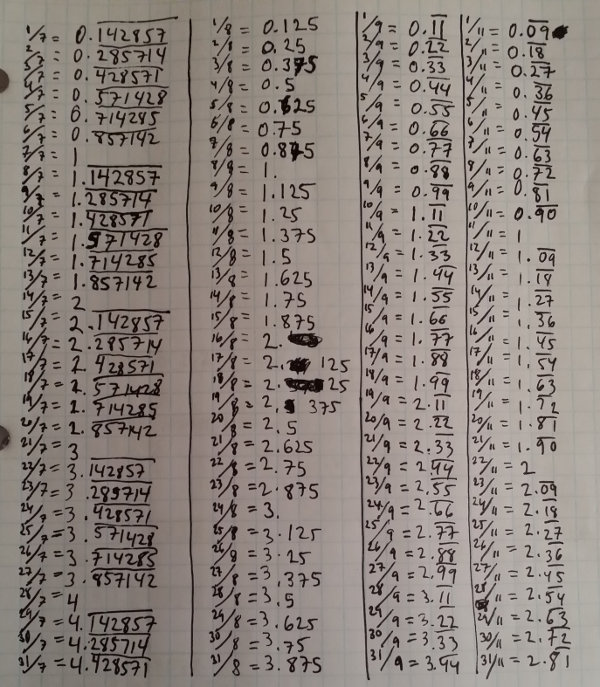 1/7 = 0.142857
2/7 = 0.285714
3/7 = 0.428571
4/7 = 0.571428
5/7 = 0.714285
6/7 = 0.857142
7/7 = 1
8/7 = 1.142857
9/7 = 1.285714
10/7 = 1.428571
11/7 = 1.571428
12/7 = 1.714285
13/7 = 1.857142
14/7 = 2
15/7 = 2.142857
16/7 = 2.285714
17/7 = 2.428571
18/7 = 2.571428
19/7 = 2.714285
20/7 = 2.857142
21/7 = 3
22/7 = 3.142857
23/7 = 3.285714
24/7 = 3.428571
25/7 = 3.571428
26/7 = 3.714285
27/7 = 3.857142
28/7 = 4
29/7 = 4.142857
30/7 = 4.285714
31/7 = 4.428571
1/8 = 0.125
2/8 = 0.25
3/8 = 0.375
4/8 = 0.5
5/8 = 0.625
6/8 = 0.75
7/8 = 0.875
8/8 = 1.
9/8 = 1.125
10/8 = 1.25
11/8 = 1.375
12/8 = 1.5
13/8 = 1.625
14/8 = 1.75
15/8 = 1.875
16/8 = 2.
17/8 = 2.125
18/8 = 2.25
19/8 = 2.375
20/8 = 2.5
21/8 = 2.625
22/8 = 2.75
23/8 = 2.875
24/8 = 3.
25/8 = 3.125
26/8 = 3.25
27/8 = 3.375
28/8 = 3.5
29/8 = 3.625
30/8 = 3.75
31/8 = 3.875
1/9 = 0.11
2/9 = 0.22
3/9 = 0.33
4/9 = 0.44
5/9 = 0.55
6/9 = 0.66
7/9 = 0.77
8/9 = 0.88
9/9 = 0.99
10/9 = 1.11
11/9 = 1.22
12/9 = 1.33
13/9 = 1.44
14/9 = 1.55
15/9 = 1.66
16/9 = 1.77
17/9 = 1.88
18/9 = 1.99
19/9 = 2.11
20/9 = 2.22
21/9 = 2.33
22/9 = 2.44
23/9 = 2.55
24/9 = 2.66
25/9 = 2.77
26/9 = 2.88
27/9 = 2.99
28/9 = 3.11
29/9 = 3.22
30/9 = 3.33
31/9 = 3.44
1/11 = 0.09
2/11 = 0.18
3/11 = 0.27
4/11 = 0.36
5/11 = 0.45
6/11 = 0.54
7/11 = 0.63
8/11 = 0.72
9/11 = 0.81
10/11 = 0.90
11/11 = 1
12/11 = 1.09
13/11 = 1.18
14/11 = 1.27
15/11 = 1.36
16/11 = 1.45
17/11 = 1.54
18/11 = 1.63
19/11 = 1.72
20/11 = 1.81
21/11 = 1.90
22/11 = 2
23/11 = 2.09
24/11 = 2.18
25/11 = 2.27
26/11 = 2.36
27/11 = 2.45
28/11 = 2.54
29/11 = 2.63
30/11 = 2.72
31/11 = 2.81